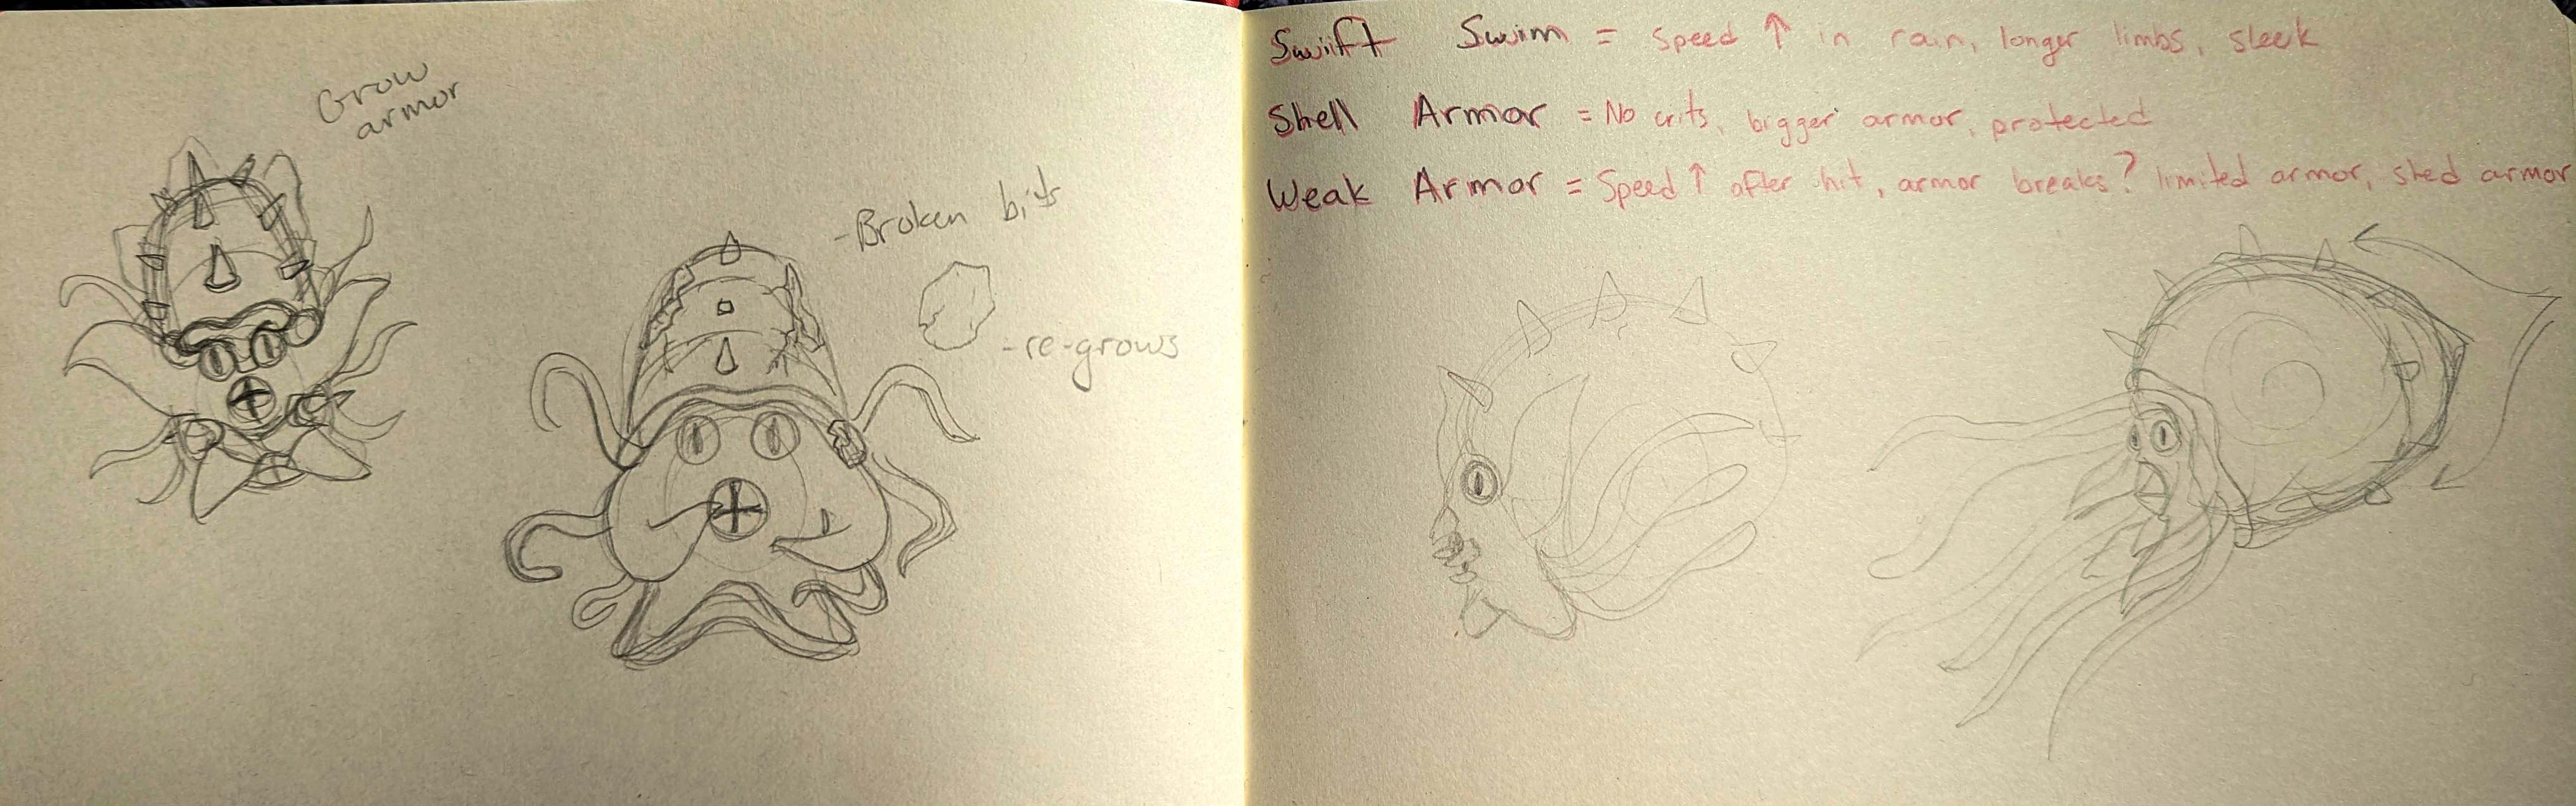 Grow
armor
-Broken bits
-re-grows
Swift Swim = Speed ↑ in rain, longer limbs, sleek
Shell Armor = No crits, bigger armor, protected
Weak Armor = Speed ↑ after hit, armor breaks? limited armor, shed armor